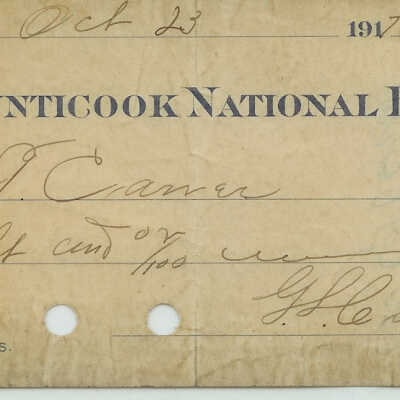 Oct 23 1917
UNTICOOK NATIONAL B
T Carver
and 02/100
G. S. C
S.